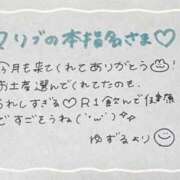 ♡リブの本指名さま♡
今月も来てくれてありがとう
お土産選んでくれたのも、
うれしすぎる♡R1飲んで健康
ですごそうね(´ω`)
ゆずるより